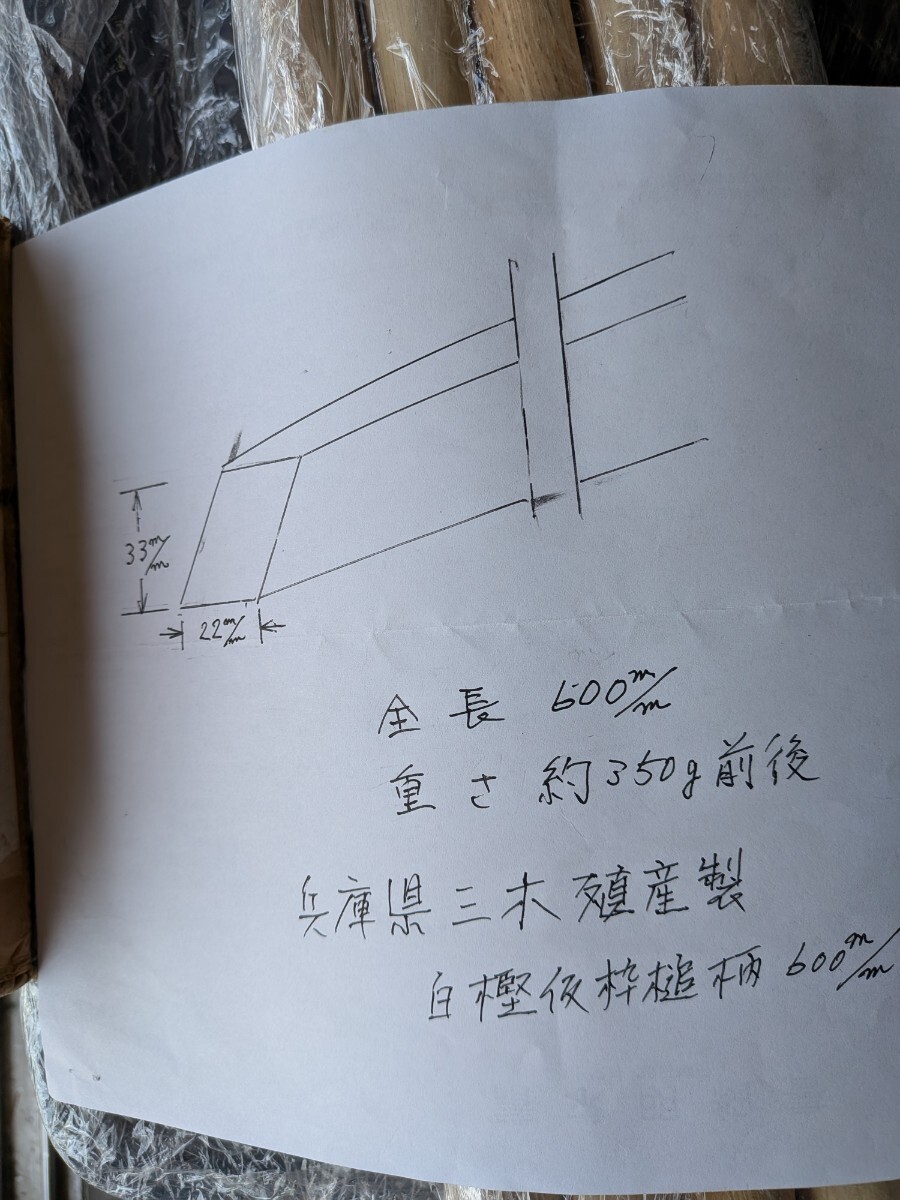 33m/m
22m/m
全長 600m/m
重さ 約350g前後
兵庫県三木殖産製
白樫仮枠槌柄600m/m